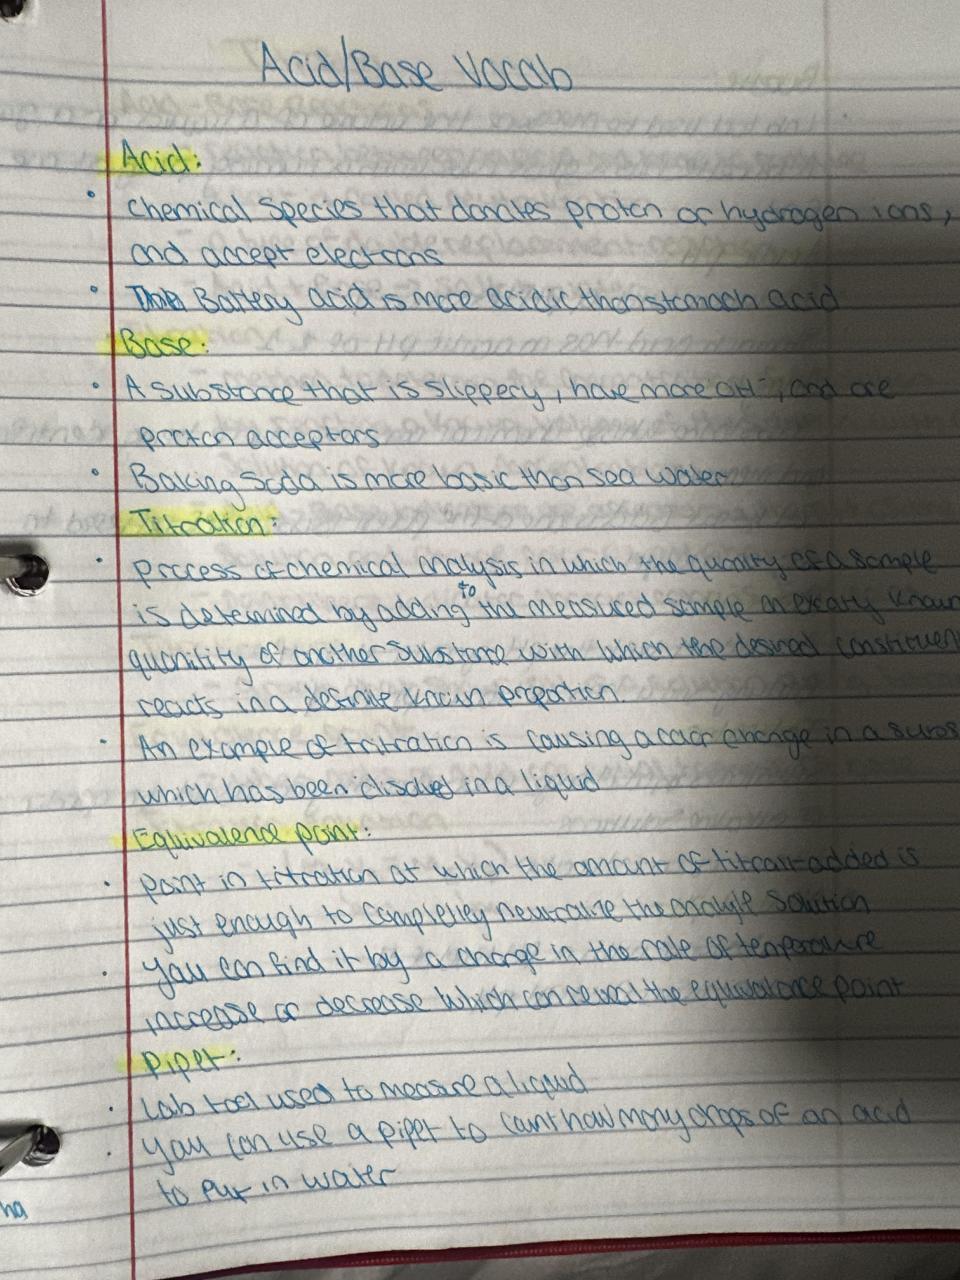 Acid/Base Vocab
Acid:
• Chemical Species that donates proton or hydrogen ions,
and accept electrons
• Battery acid is more acidic than stomach acid
Base:
• A substance that is slippery, have more OH⁻, and are
proton acceptors
• Baking Soda is more basic than sea water
Titration:
• Process of chemical analysis in which the quanity of a sample
is determined by adding to the measured sample an exactly known
quanitity of another substance with which the desired constituen
reacts in a definite known proportion.
• An example of titration is causing a color change in a subs
which has been disolved in a liquid
Equivalence point:
• point in titration at which the amount of titrant added is
just enough to completley neutralize the analyte solution
• you can find it by a change in the rate of temperature
increase or decrease which can reveal the equivalence point
Pipet:
• Lab tool used to measure a liquid
• you can use a pipet to count how many drops of an acid
to put in water